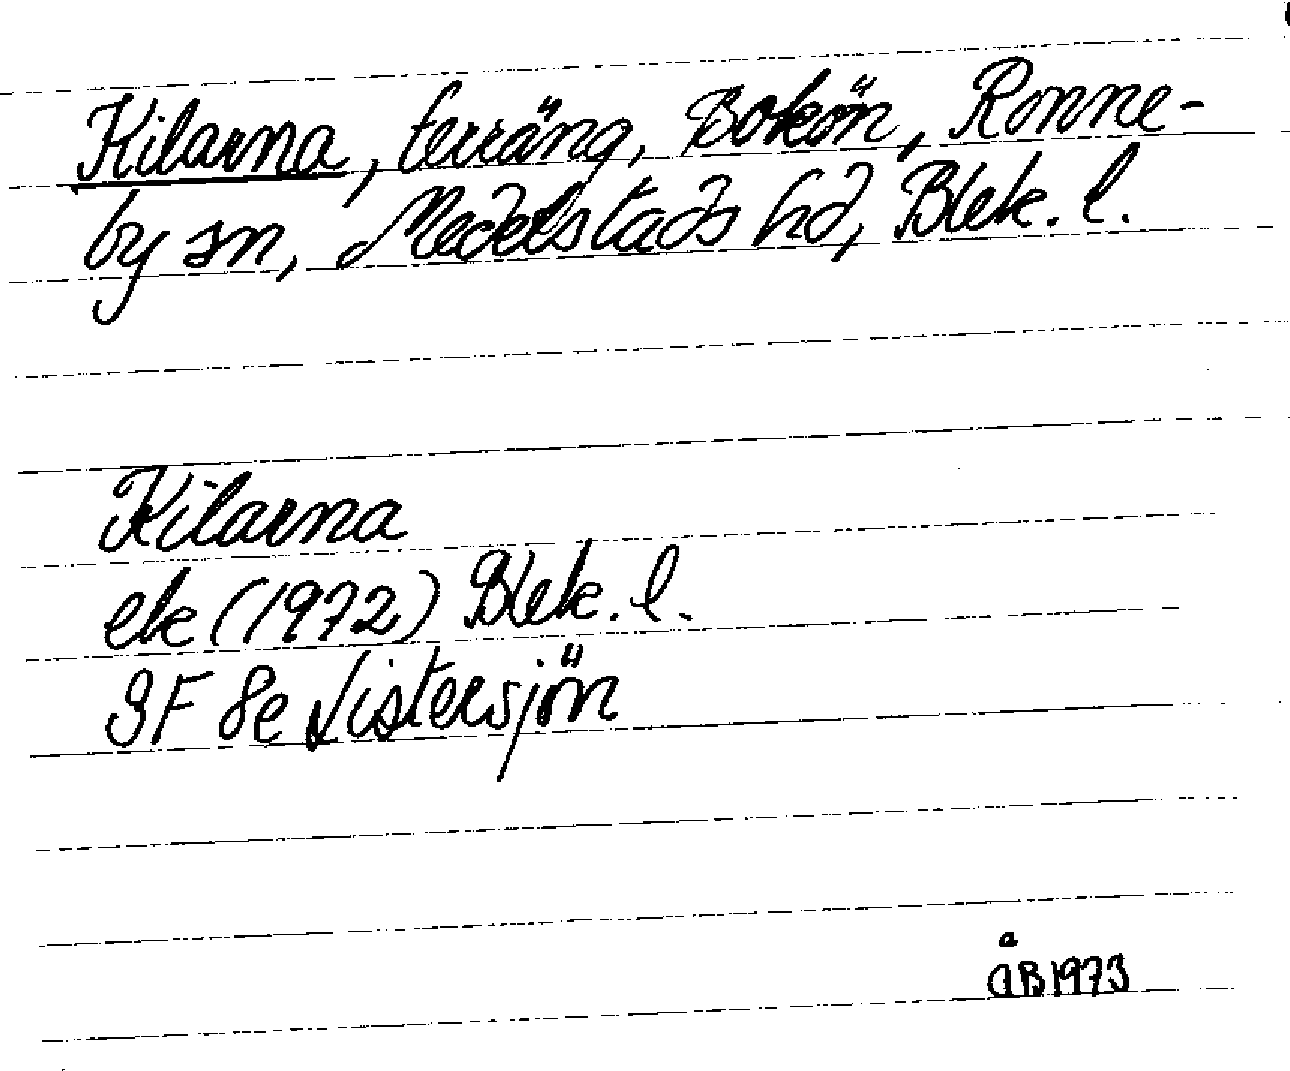 Kilarna, terräng, Bokön, Ronne-
by sn, Medelstads hd, Blek. l.
Kilarna
ek (1972) Blek. l.
3F 8e Listersjön
ÅB 1973